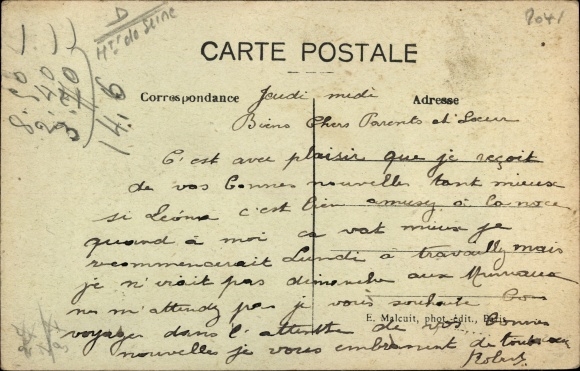 D
Hts de Seine
2041
CARTE POSTALE
Correspondance
Adresse
Jeudi midi
Biens Chers Parents et Sœur
C'est avec plaisir que je reçoit
de vos bonnes nouvelles tant mieux
si Leóna c'est bien amusez à la noce
quand à moi ca vat mieux je
recommencerait Lundi à travailly mais
je n'irait pas dimanche aux Mureaux
ne m'attendez pas je vous souhaite bons
E. Malcuit, phot. édit., Paris
voyages dans l'attentte de vos bonnes
nouvelles je vous embrassent de tous
Robert